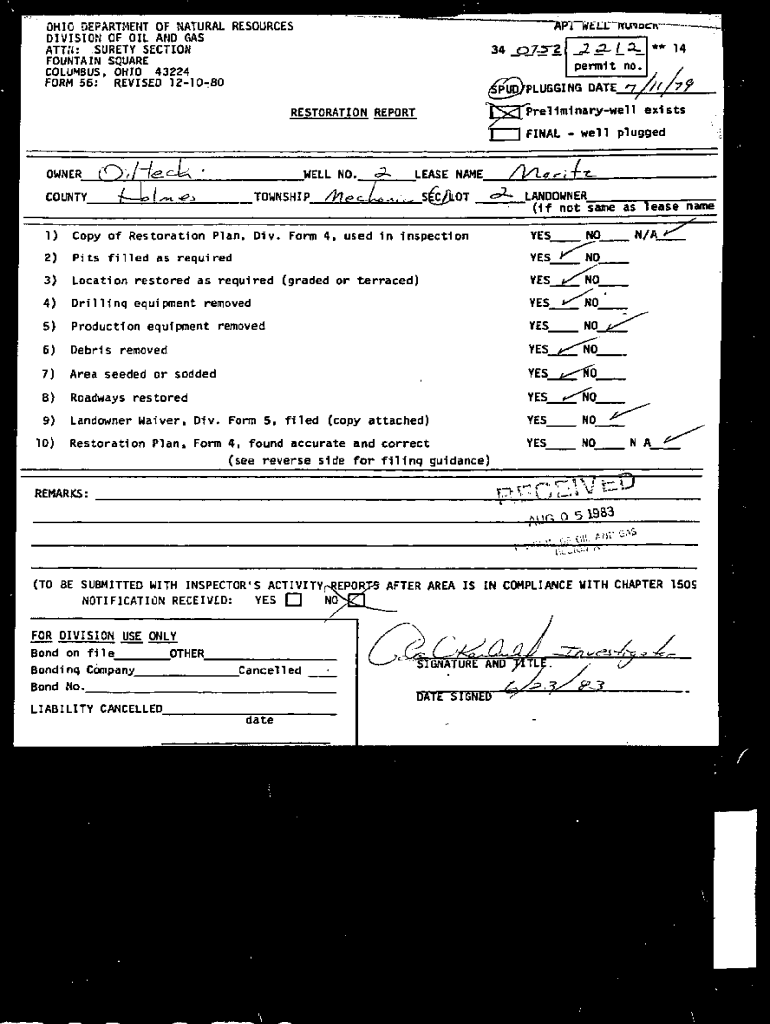 OHIO DEPARTMENT OF NATURAL RESOURCES
DIVISION OF OIL AND GAS
ATTN: SURETY SECTION
FOUNTAIN SQUARE
COLUMBUS, OHIO 43224
FORM 56: REVISED 12-10-80
API WELL NUMBER
34 0752 2212 ** 14
permit no.
SPUD/PLUGGING DATE 7/11/79
RESTORATION REPORT
Preliminary-well exists
FINAL - well plugged
OWNER Oiltech. WELL NO. 2 LEASE NAME Moritz
COUNTY Holmes TOWNSHIP Mechanic SEC/LOT 2 LANDOWNER
(if not same as lease name
1) Copy of Restoration Plan, Div. Form 4, used in inspection YES NO N/A ✓
2) Pits filled as required YES ✓ NO
3) Location restored as required (graded or terraced) YES ✓ NO
4) Drilling equipment removed YES ✓ NO
5) Production equipment removed YES NO ✓
6) Debris removed YES ✓ NO
7) Area seeded or sodded YES ✓ NO
8) Roadways restored YES ✓ NO
9) Landowner Waiver, Div. Form 5, filed (copy attached) YES NO ✓
10) Restoration Plan, Form 4, found accurate and correct YES NO N A ✓
(see reverse side for filing guidance)
REMARKS:
RECEIVED
AUG 05 1983
OIL AND GAS
(TO BE SUBMITTED WITH INSPECTOR'S ACTIVITY REPORTS AFTER AREA IS IN COMPLIANCE WITH CHAPTER 1509
NOTIFICATION RECEIVED: YES NO
FOR DIVISION USE ONLY
Bond on file OTHER
Bonding Company Cancelled
Bond No.
LIABILITY CANCELLED
date
Investigator
SIGNATURE AND TITLE.
6/23/83
DATE SIGNED